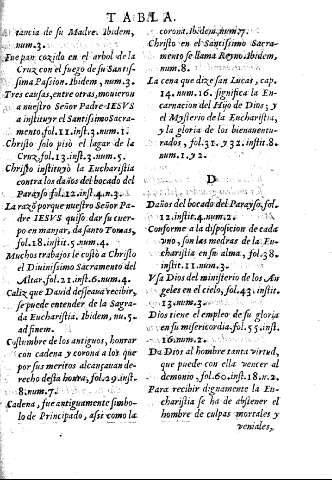 TABLA.
tancia de su Madre. Ibidem,
num.3.
Fue pan cozido en el arbol de la
Cruz con el fuego de su Santis-
sima Passion. Ibidem, num.3.
Tres causas, entre otras, movieron
a nuestro Señor Padre IESVS
a instituyr el Santissimo Sacra-
mento, fol.11.inst.3.num.1.
Christo solo pisò el lagar de la
Cruz, fol.13.inst.3.num.5.
Christo instituyò la Eucharistia
contra los daños del bocado del
Parayso, fol.12.inst.4.n.3.
La razõ porque nuestro Señor Pa-
dre IESVS quiso dar su cuer-
po en manjar, da santo Tomas,
fol.18.instit.5.num.4.
Muchos trabajos le costò a Christo
el Divinissimo Sacramento del
Altar, fol.21.inst.6.num.4.
Caliz que David desseava recibir,
se puede entender de la Sagra-
da Eucharistia. Ibidem, nu.5.
ad finem.
Costumbre de los antiguos, honrar
con cadena y corona a los que
por sus meritos alcançavan de-
recho desta honra, fol.29.inst.
8.num.7.
Cadena, fue antiguamente simbo-
lo de Principado, assi como la
corona. Ibidem, num.7.
Christo en el Santissimo Sacra-
mento se llama Reyno. Ibidem,
num.8.
La cena que dize san Lucas, cap.
14.num.16. significa la En-
carnacion del Hijo de Dios; y
el Mysterio de la Eucharistia,
y la gloria de los bienaventu-
rados, fol.31.y 32.instit.8.
num.1.y 2.
D
Daños del bocado del Parayso, fol.
12.instit.4.num.2.
Conforme a la disposicion de cada
uno, son las medras de la Eu-
charistia en su alma, fol.38.
instit.11.num.3.
Vsa Dios del ministerio de los An-
geles en el cielo, fol.43.instit.
13.num.3.
Dios tiene el empleo de su gloria
en su misericordia, fol.55.inst.
16.num.2.
Da Dios al hombre tanta virtud,
que puede con ella vencer al
demonio, fol.60.inst.18.n.2.
Para recibir dignamente la Eu-
charistia se ha de abstener el
hombre de culpas mortales y
veniales,